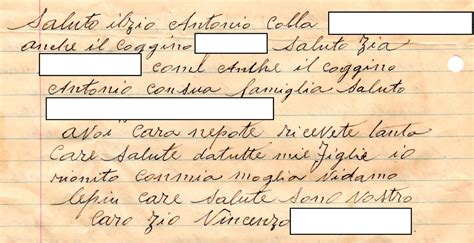 Saluto ilzio Antonio colla
anche il coggino Saluto Zia
come Anche il coggino
Antonio con sua famiglia saluto
avoi cara nepote ricevete tanta
care salute datutte mie figlie io
rionito conmia moglia vidamo
lepiu care salute sono vostro
caro zio Vincenzo